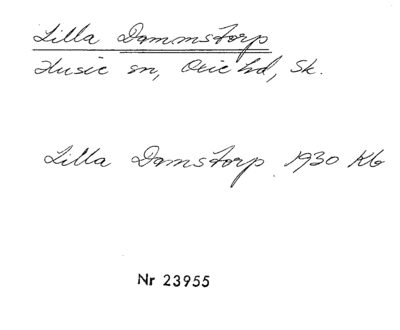 Lilla Dammstorp
Husie sn, Oxie hd, Sk.
Lilla Damstorp 1930 Kb
Nr 23955